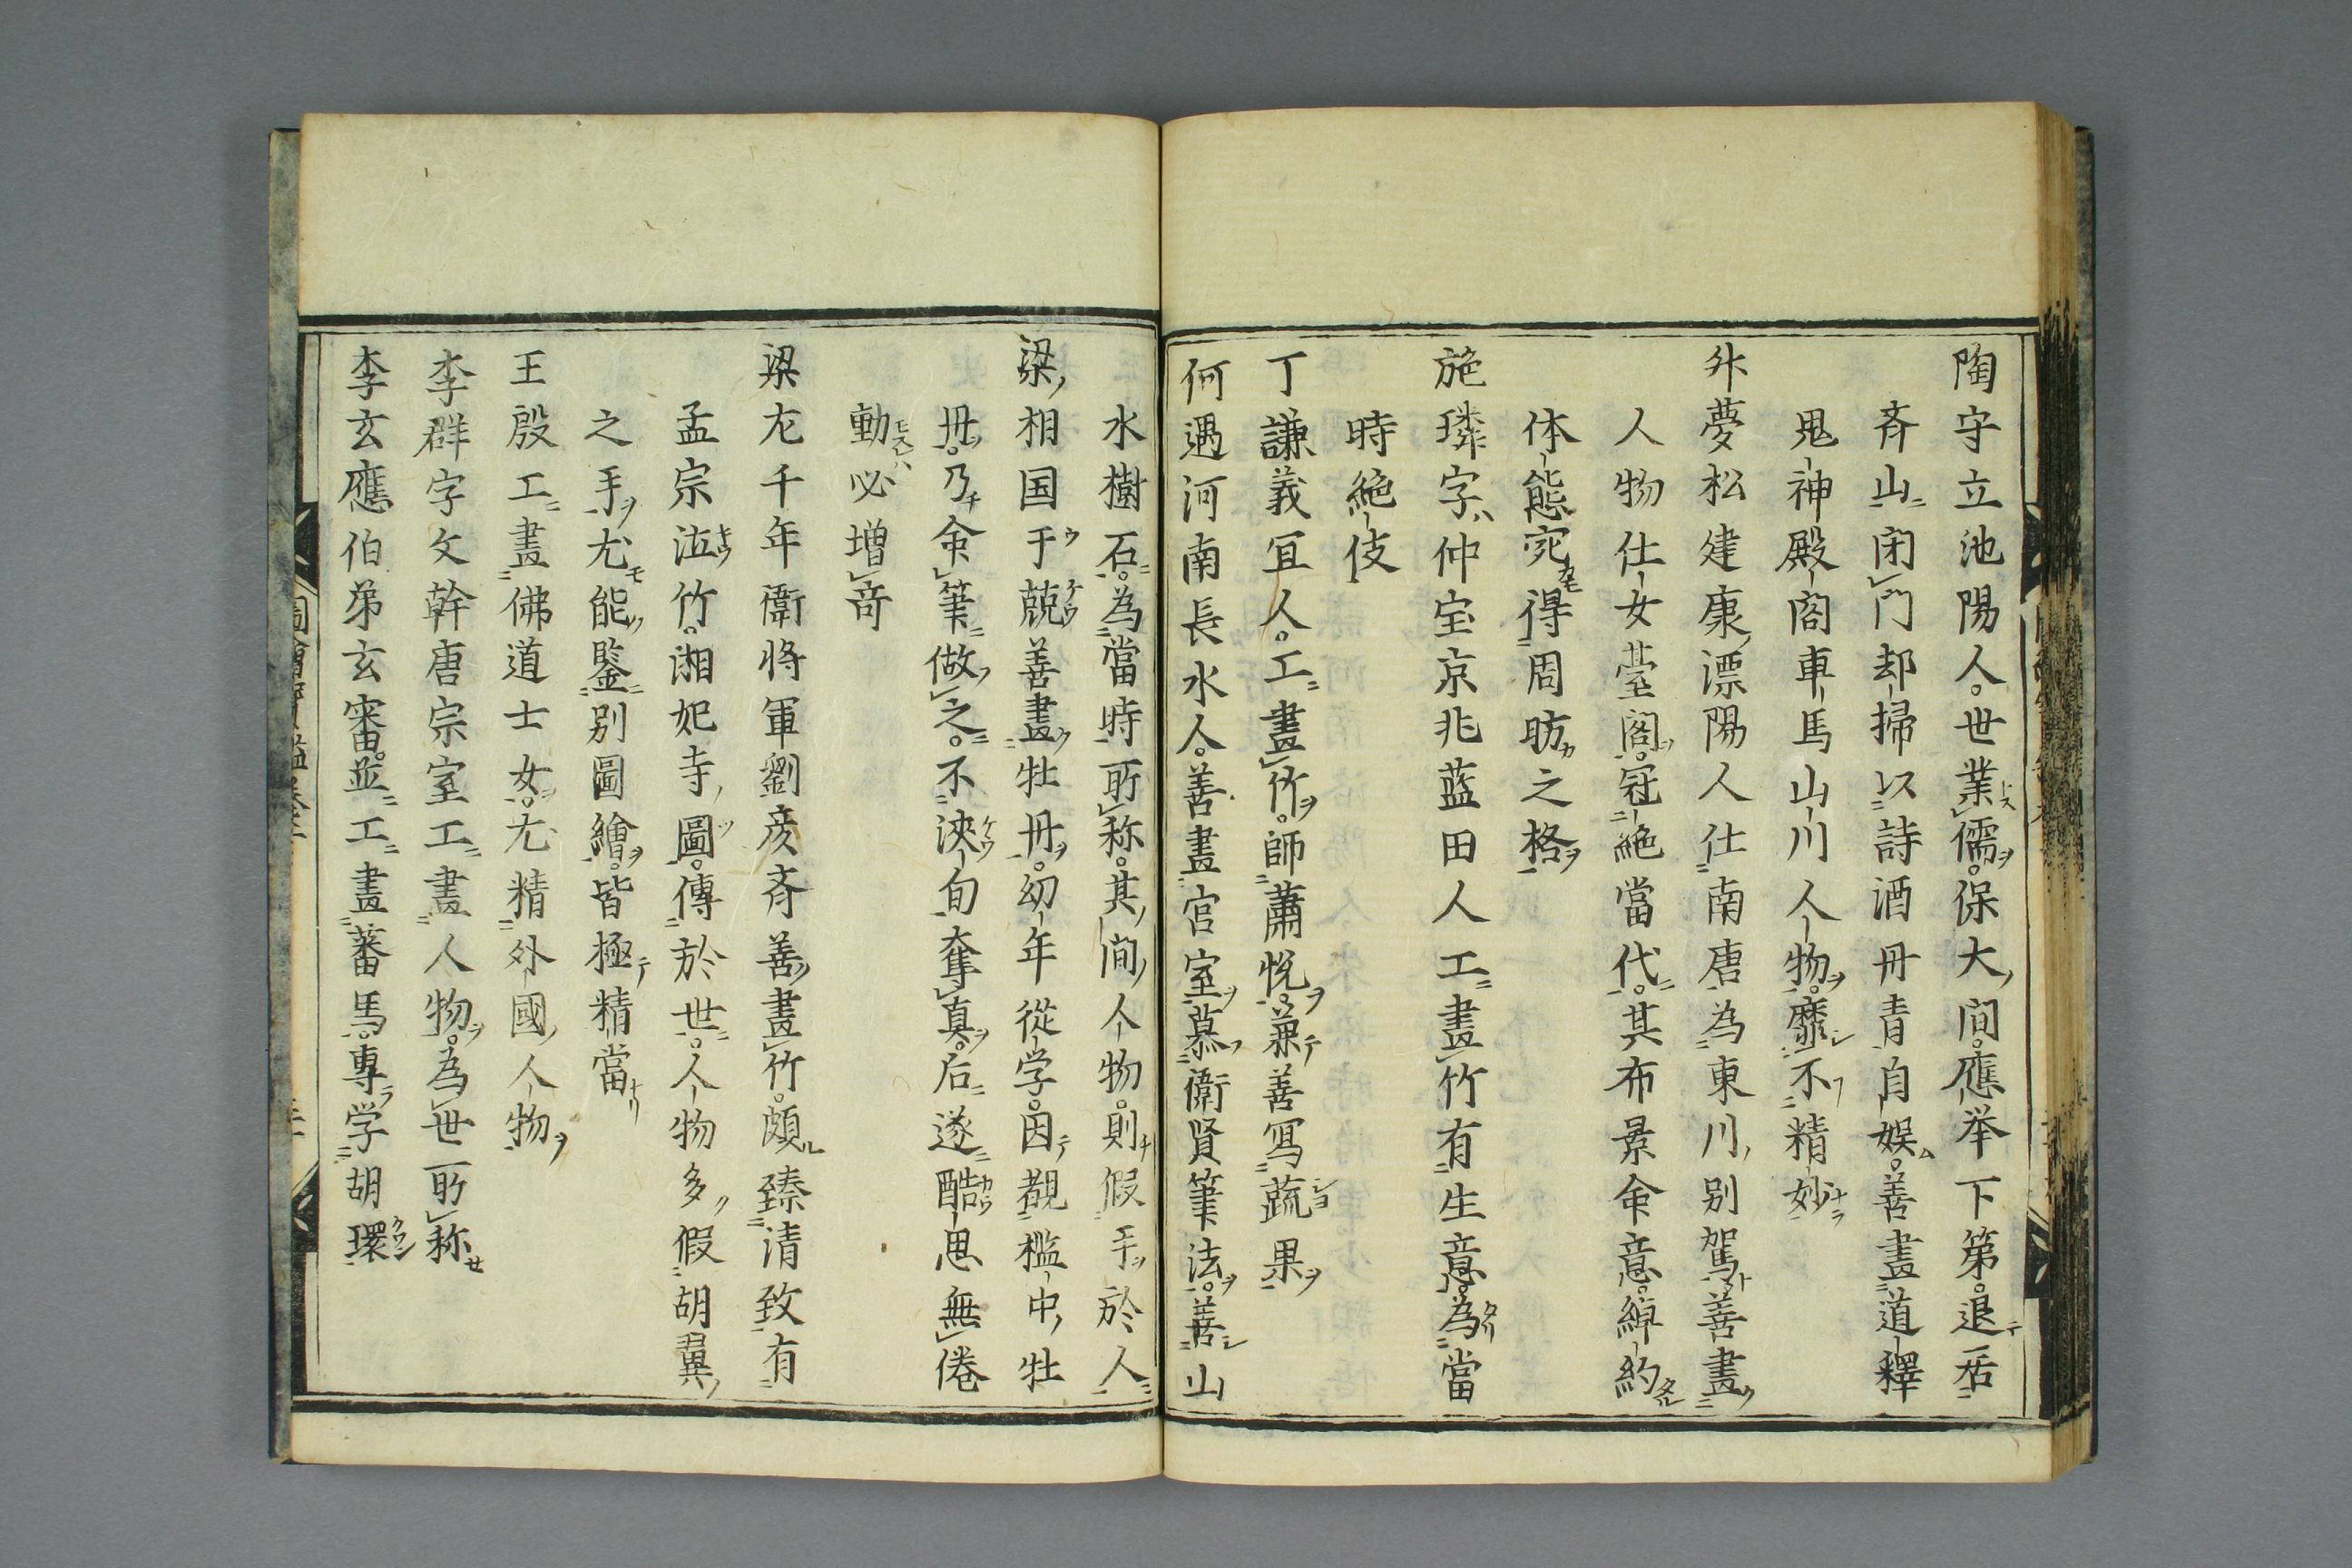 陶守立池陽人。世業儒。保大間。應举下第。退居
斉山閉門却掃以詩酒丹青自娯。善畫道釋
鬼神殿閣車馬山川人物。靡不精妙
外夢松建康溧陽人仕南唐為東川別駕善畫
人物仕女䑓閣。冠絶當代。其布景命意。綽約
体態宛得周昉之格
施璘字仲宝京兆蓝田人工畫竹有生意。為當
時絶伎
丁謙義冝人。工畫竹。師蕭悦。兼善寫蔬果
何遇河南長水人。善畫官室慕衛賢筆法。善山
水樹石。為當時所称。其間人物。則假手於人
梁相国于兢善畫牡丹。幼年從学。因覩檻中牡
丹。乃命筆倣之。不浹旬奪真。后遂酷思無倦
動必増奇
梁左千年衛将軍劉彦斉善畫竹。頗臻清致有
孟宗泣竹。湘妃寺圖。傳於世。人物多假胡翼
之手尤能鑒別圖繪。皆極精當
王殷工畫佛道士女。尤精外國人物
李群字文幹唐宗室工畫人物。為世所称
李玄應伯弟玄審。並工畫蕃馬。專学胡瓌